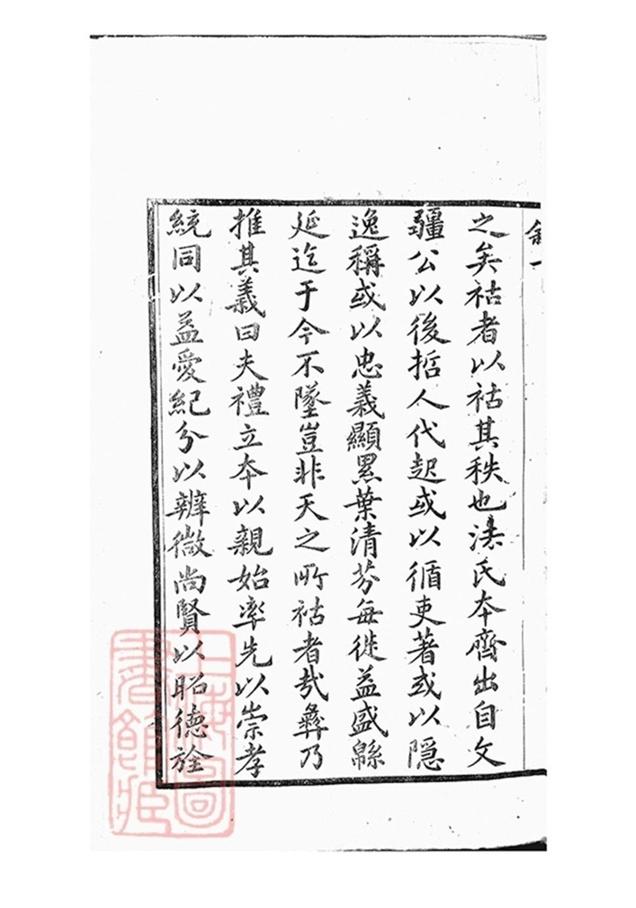 之矣祜者以祜其秩也法氏本齊出自文
疆公以後哲人代起或以循吏著或以隱
逸稱或以忠義顯累葉清芬每徙益盛緜
延迄于今不墜豈非天之所祜者哉彝乃
推其義曰夫禮立本以親始率先以崇孝
統同以益愛紀分以辨微尚賢以昭德
上海圖書館藏